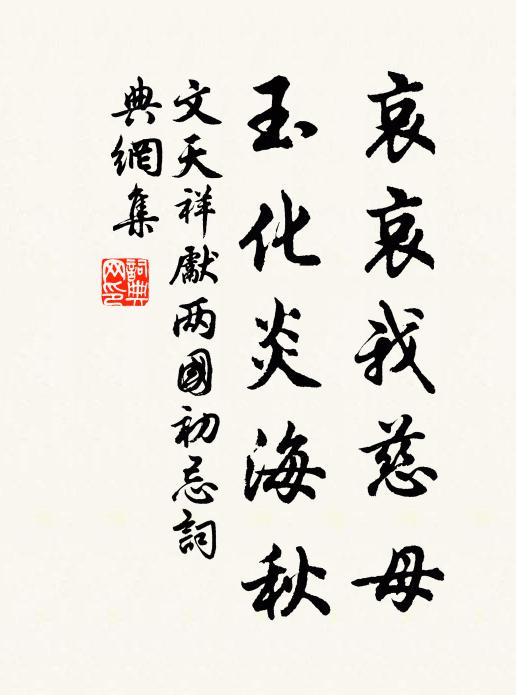 哀哀我慈母
玉化炎海秋
文天祥獻两國初忌詞
典網集
詞典
网印